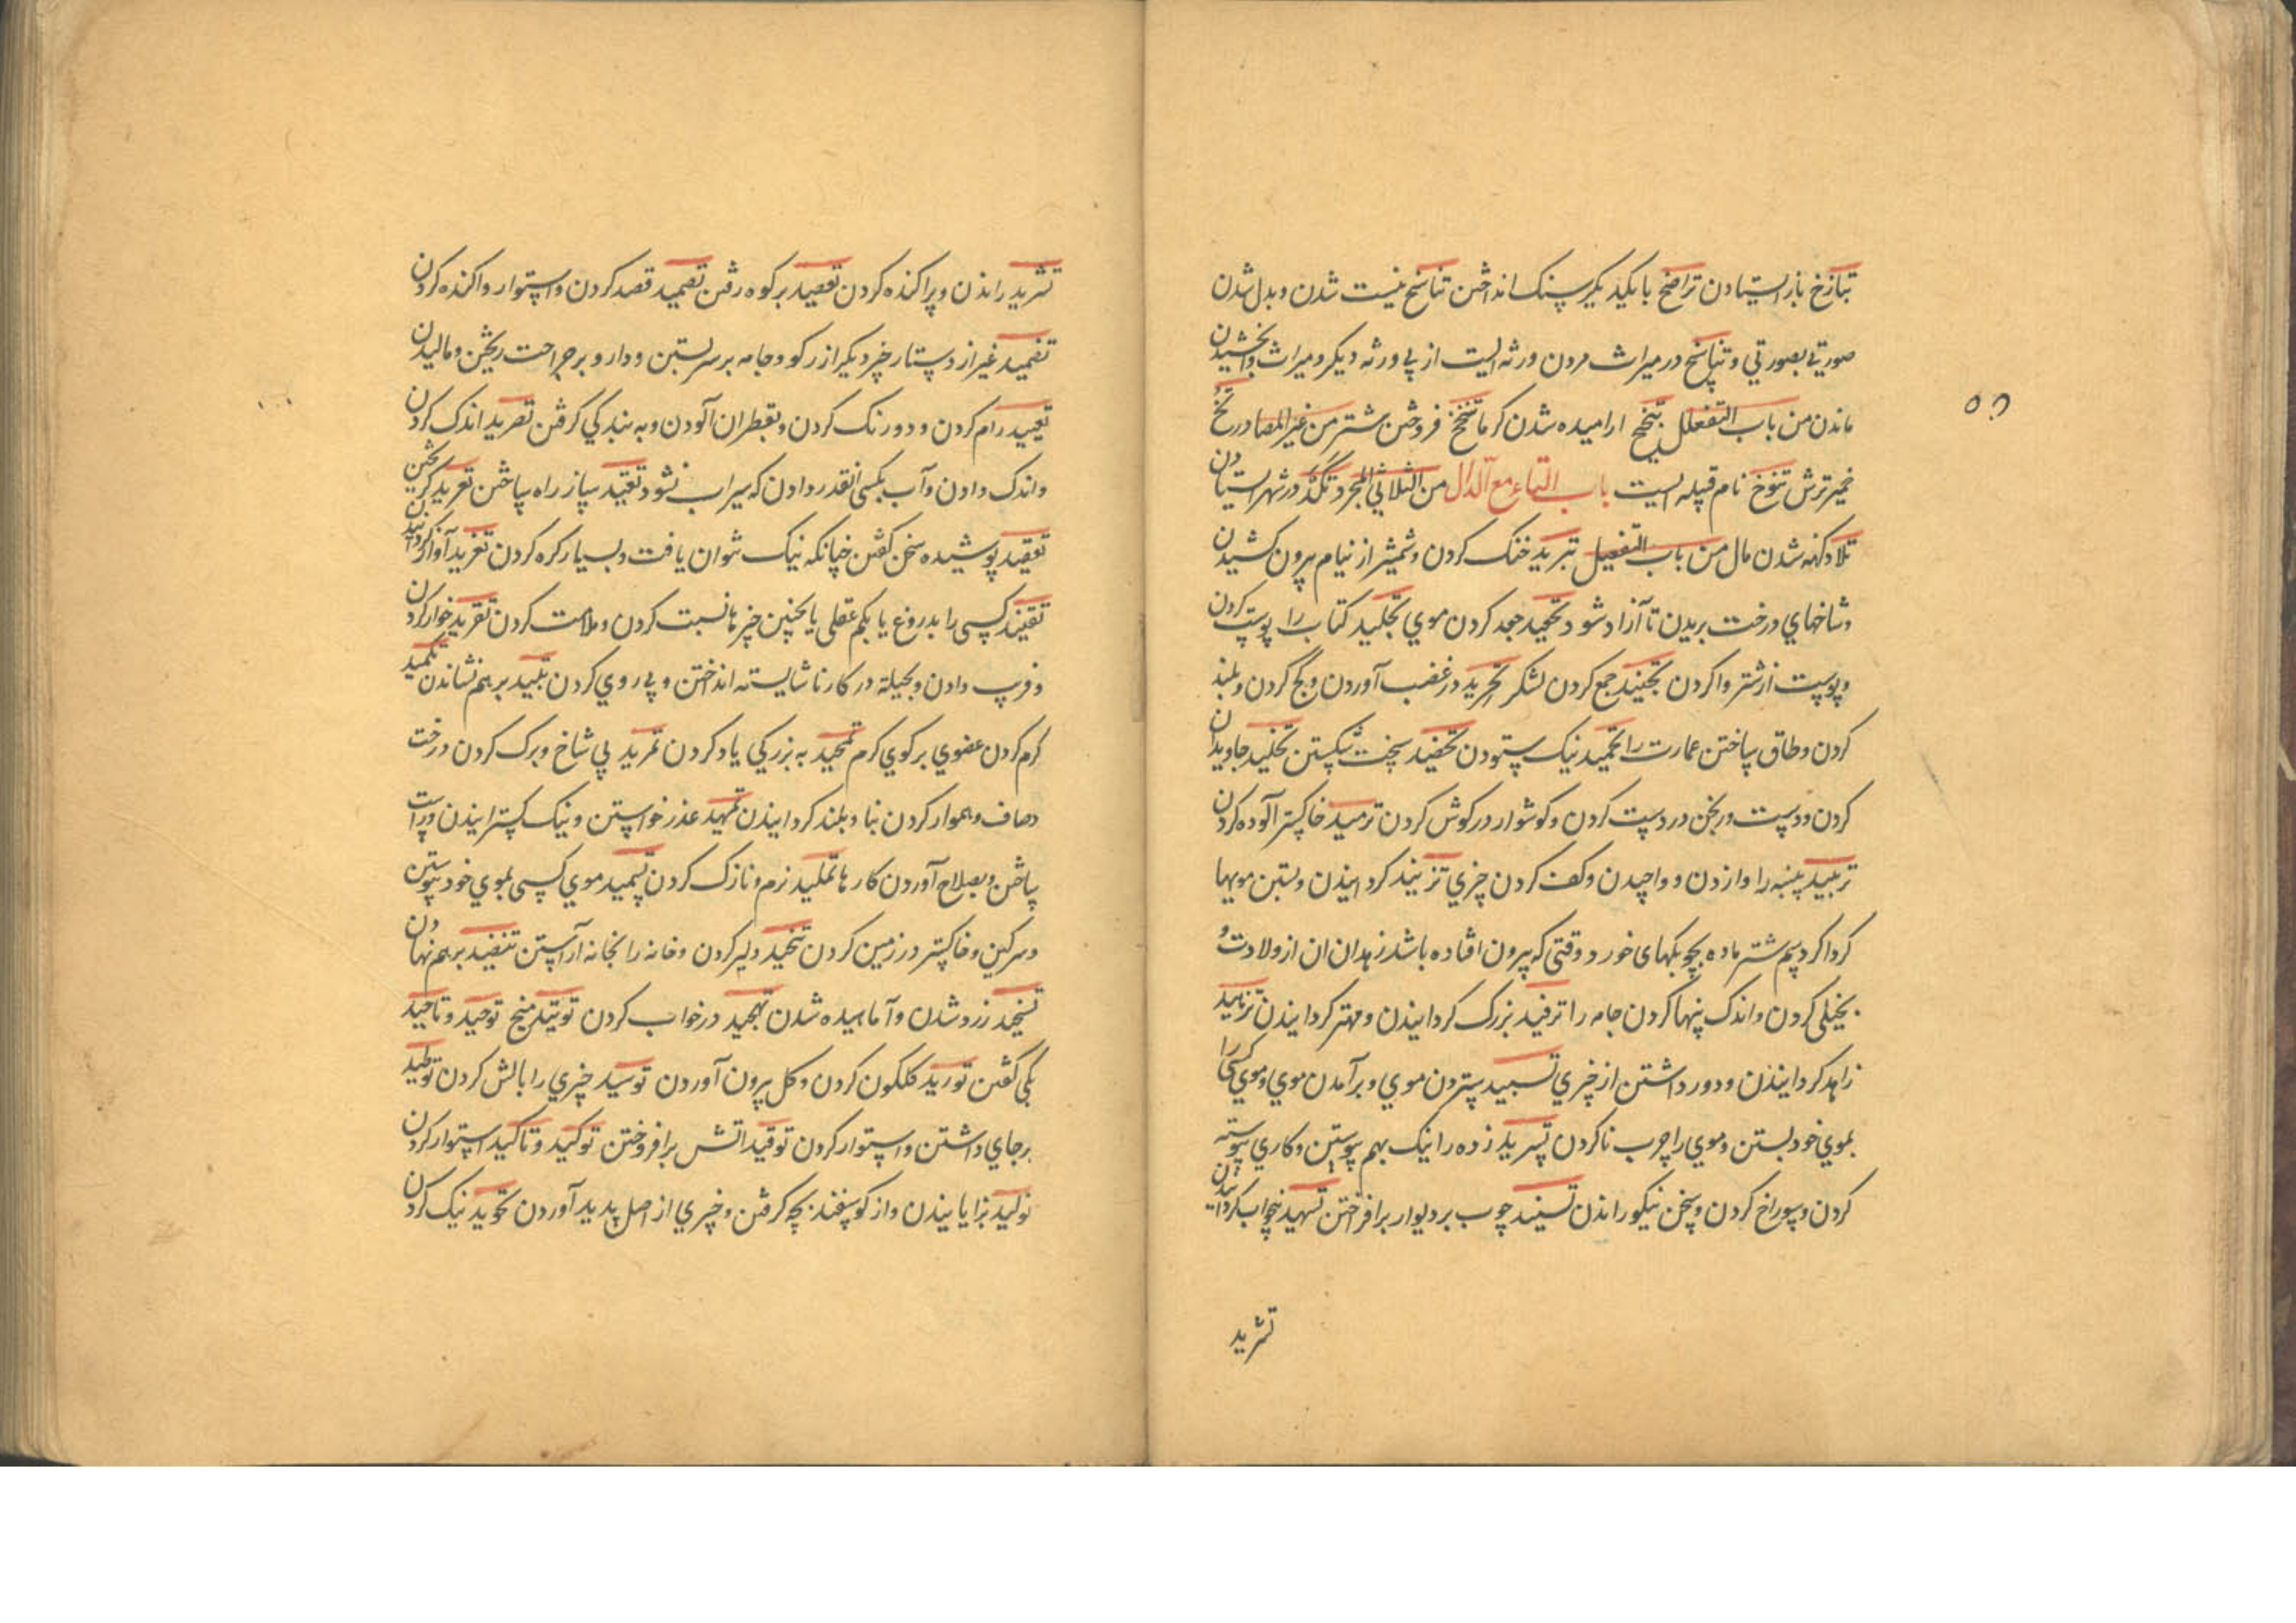 تبازخ باز ایستادن تراضخ با یکدیگر سنک انداختن تناسخ نیست شدن و بدل شدن
صورتی بصورتی و تناسخ در میراث مردن ورثه ایست از پی ورثه دیکر و میراث وابخشیدن
ماندن من باب التفعلل تبخبخ ارامیده شدن کرما تنخنخ فروختن شتر من غیر المصادر تخ
خمیر ترش تنوخ نام قبیله ایست باب التاء مع الدال من الثلاثی المجرد تکد در شهر ایستادن
تلاد کهنه شدن مال من باب التفعیل تبرید خنک کردن و شمشیر از نیام بیرون کشیدن
و شاخهای درخت بریدن تا آزاد شود تجعید جعد کردن موی تجلید کتاب را پوست کردن
و پوست از شتر وا کردن تجنید جمع کردن لشکر تحرید در غضب آوردن و کج کردن و بلند
کردن و طاق ساختن عمارت را تحمید نیک ستودن تخضید سخت شکستن تخلید جاویدان
کردن و دست ورنجن در دست کردن و کوشوار در کوش کردن ترمید خاکستر آلوده کردن
تربید پنبه را وازدن و واچیدن و کف کردن چیزی تزنید کردانیدن و بستن مویها
کرداکرد سم شتر ماده بچوبکهای خورد وقتی که بیرون افتاده باشد زهدان ان از ولادت و
بخیلی کردن و اندک پنها کردن جامه را ترفید بزرک کردانیدن و مهتر کردانیدن تزهید
زاهد کردانیدن و دور داشتن از چیزی تسبید ستردن موی و برآمدن موی و موی کسی را
بموی خود بستن و موی را چرب ناکردن تسرید زده را نیک بهم پیوستن و کاری پیوسته
کردن و سوراخ کردن و سخن نیکو راندن تسنید چوب بر دیوار برافراختن تسهید بیخواب کردانیدن
تشرید
تشرید راندن و پراکنده کردن تقصید بر کوه رفتن تصمید قصد کردن و استوار و اکنده کردن
تضمید غیر از دستار چیز دیکر از رکو و جامه بر سر بستن و دارو بر جراحت ریختن و مالیدن
تعبید رام کردن و دور نک کردن و بقطران آلودن و به بندکی کرفتن تصرید اندک کردن
و اندک دادن و آب بکسی انقدر دادن که سیراب نشود تعتید ساز راه ساختن تعرید کریختن
تعقید پوشیده سخن کفتن چنانکه نیک نتوان یافت و بسیار کره کردن تغرید آواز کردانیدن
تفنید کسی را بدروغ یا بکم عقلی یا بچنین چیزها نسبت کردن و ملامت کردن تقرید خوار کردن
و فریب دادن و بحیلة در کار ناشایسته انداختن و پی روی کردن تلبید بر هم نشاندن تکمید
کرم کردن عضوی بر کوی کرم تمجید به بزرکی یاد کردن تمرید بی شاخ و برک کردن درخت
و صاف و هموار کردن بنا و بلند کردانیدن تمهید عذر خواستن و نیک کسترانیدن و راست
ساختن و بصلاح آوردن کارها تملید نرم و نازک کردن تسمید موی کسی بموی خود پیوستن
و سرکین و خاکستر در زمین کردن تنجید دلیر کردن و خانه را بخانه آراستن تنضید بر هم نهادن
تسخید زرد شدن و آماهیده شدن تهجید در خواب کردن توتید میخ توحید و تاحید
یکی کفتن تورید کلکون کردن و کل بیرون آوردن توسید چیزی را بالش کردن توطید
برجای داشتن و استوار کردن توقید اتش برافروختن توکید و تاکید استوار کردن
تولید زایانیدن و از کوسفند بچه کرفتن و چیزی از اصل پدید آوردن تجوید نیک کردن